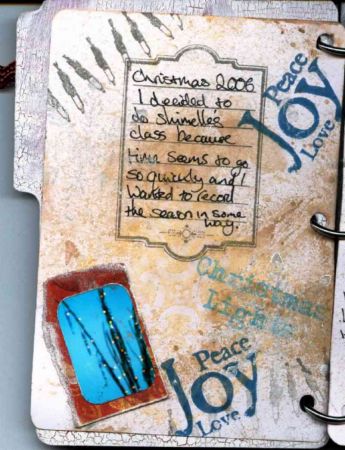 Christmas 2006
I decided to
do shimelles
class because
time seems to go
so quickly and I
wanted to record
the season in some
way.
Peace
Joy
Love
Christmas
Lights
Peace
Joy
Love